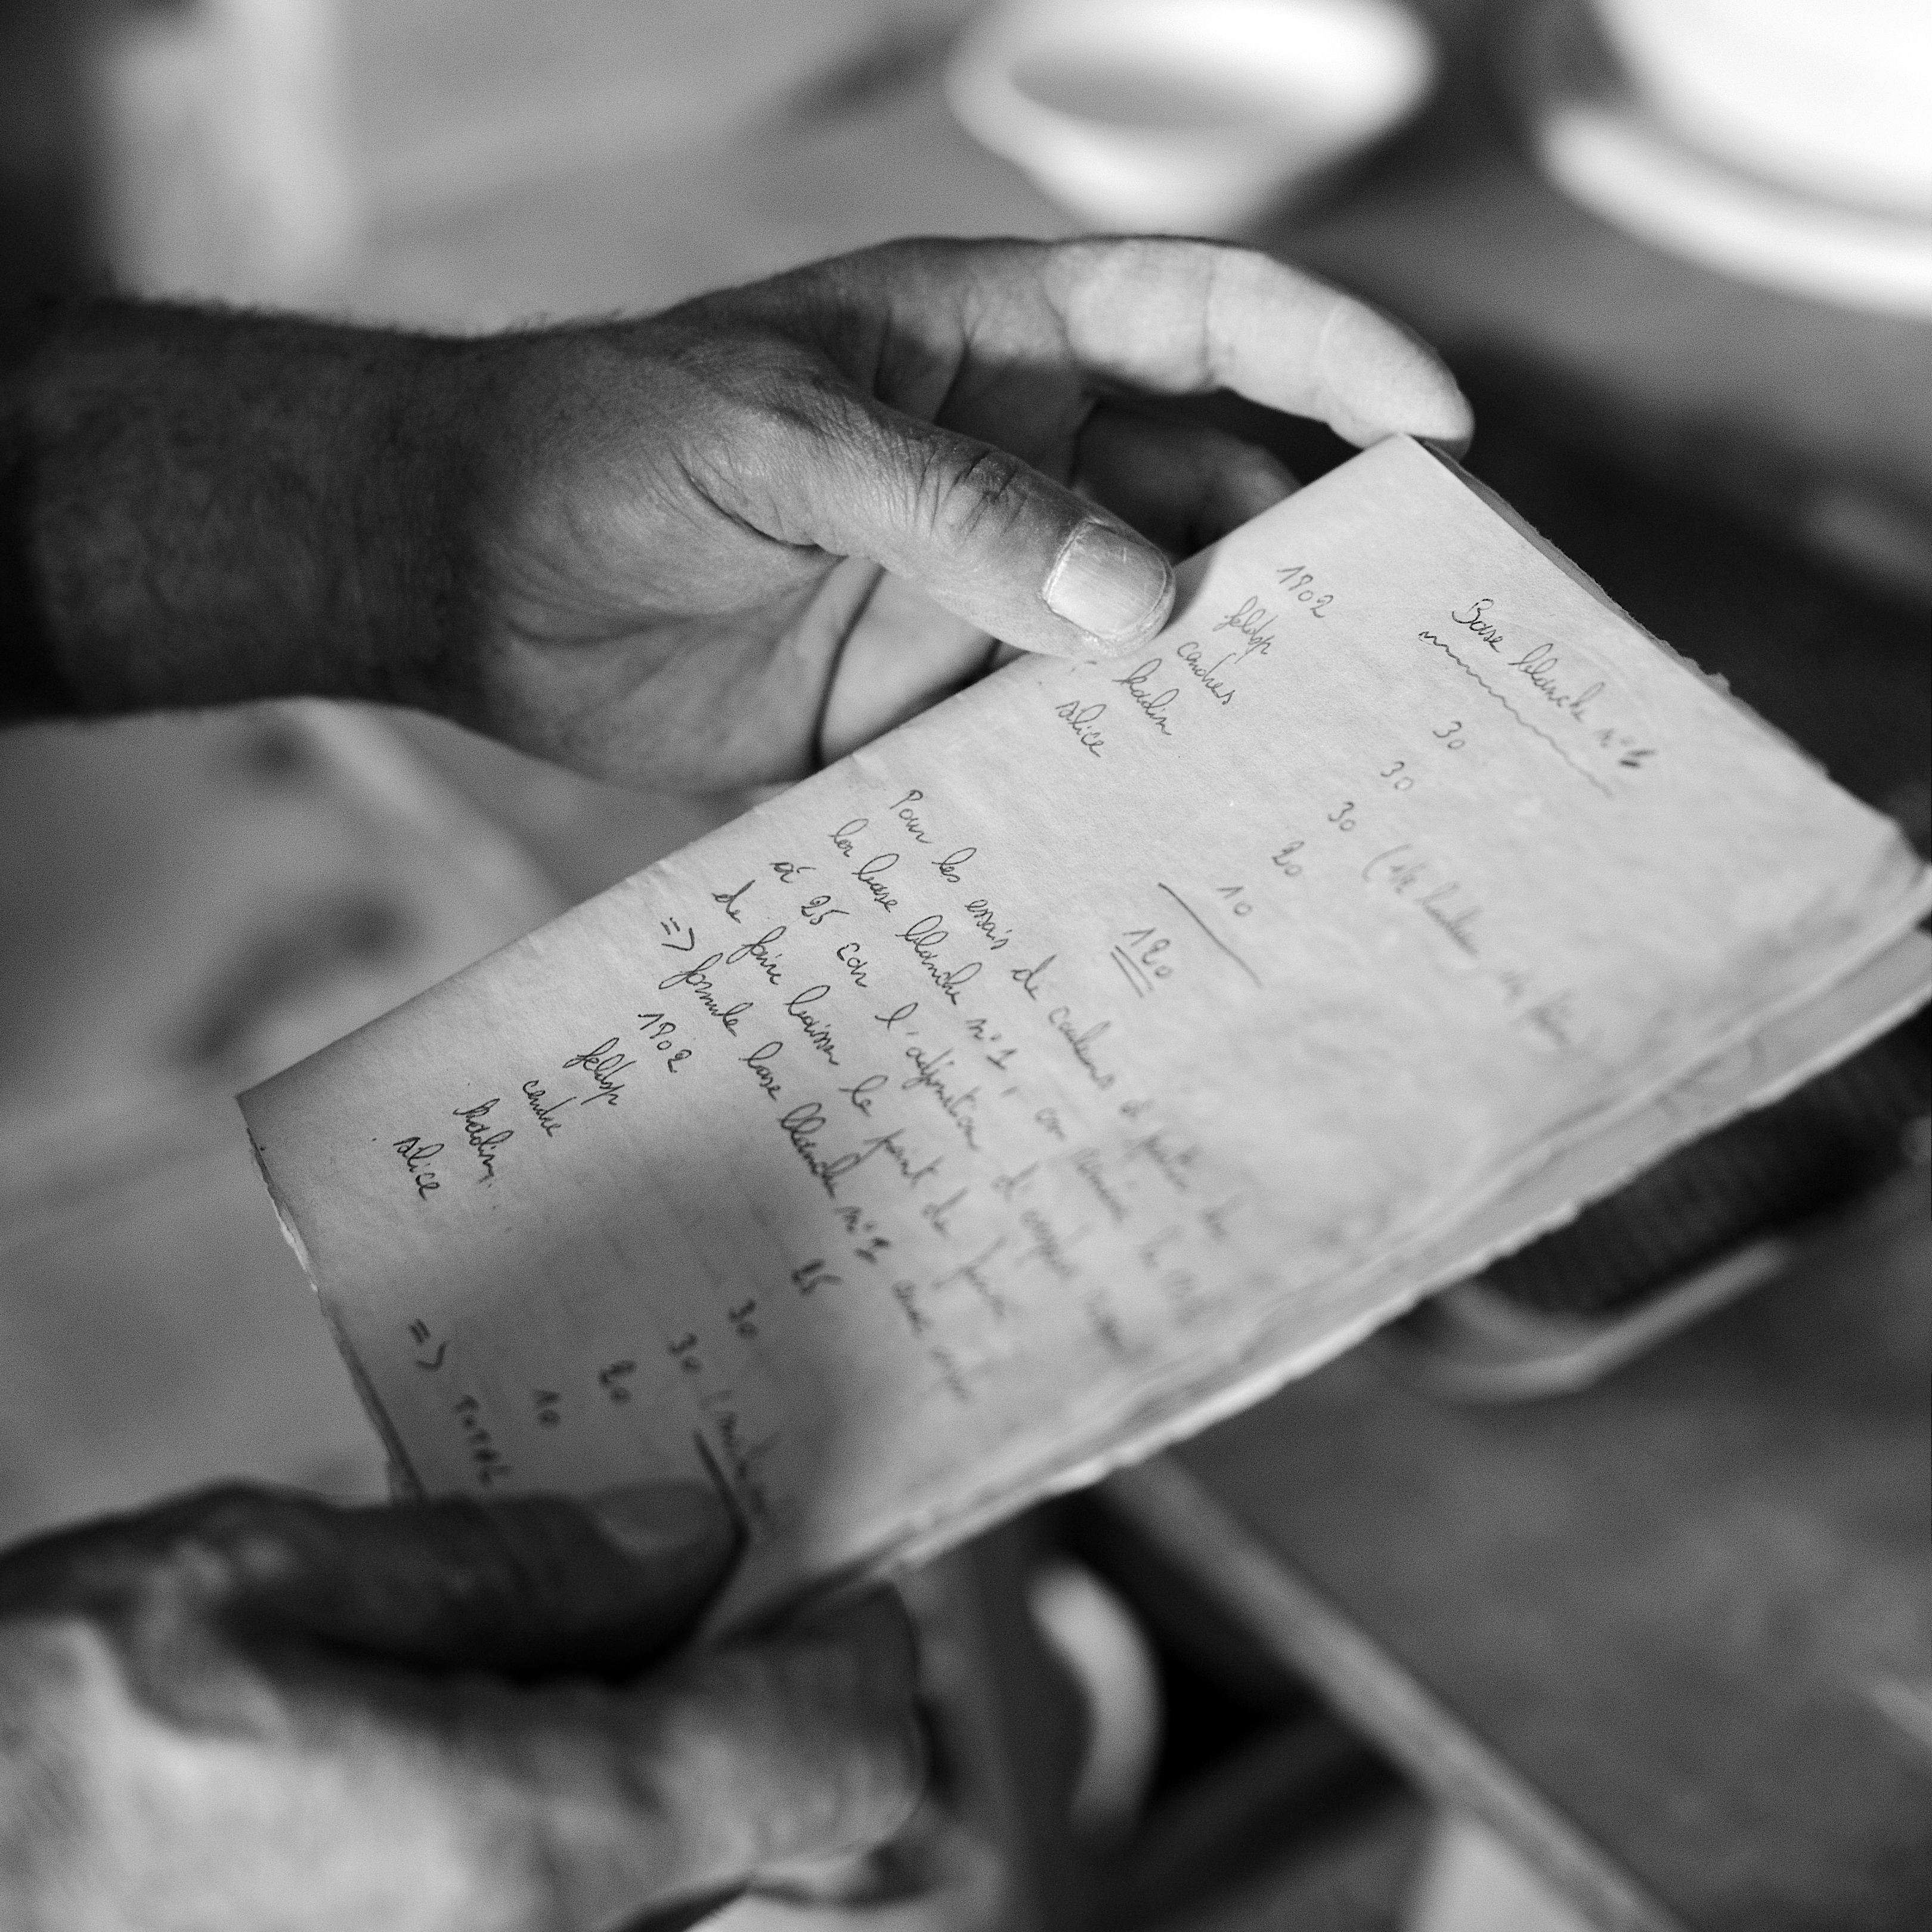 Base blanche n°1
1902 30
feldsp 30
cendres 30
kaolin 20
silice 10
120
Pour les essais de couleurs à partir de
la base blanche n°1, on
à 25 car l'adjonction d'
de faire baisser le point de
=> formule base blanche n°1 avec
1902 25
feldsp 30
cendre 30
kaolin 20
silice 10
=> TOTAL